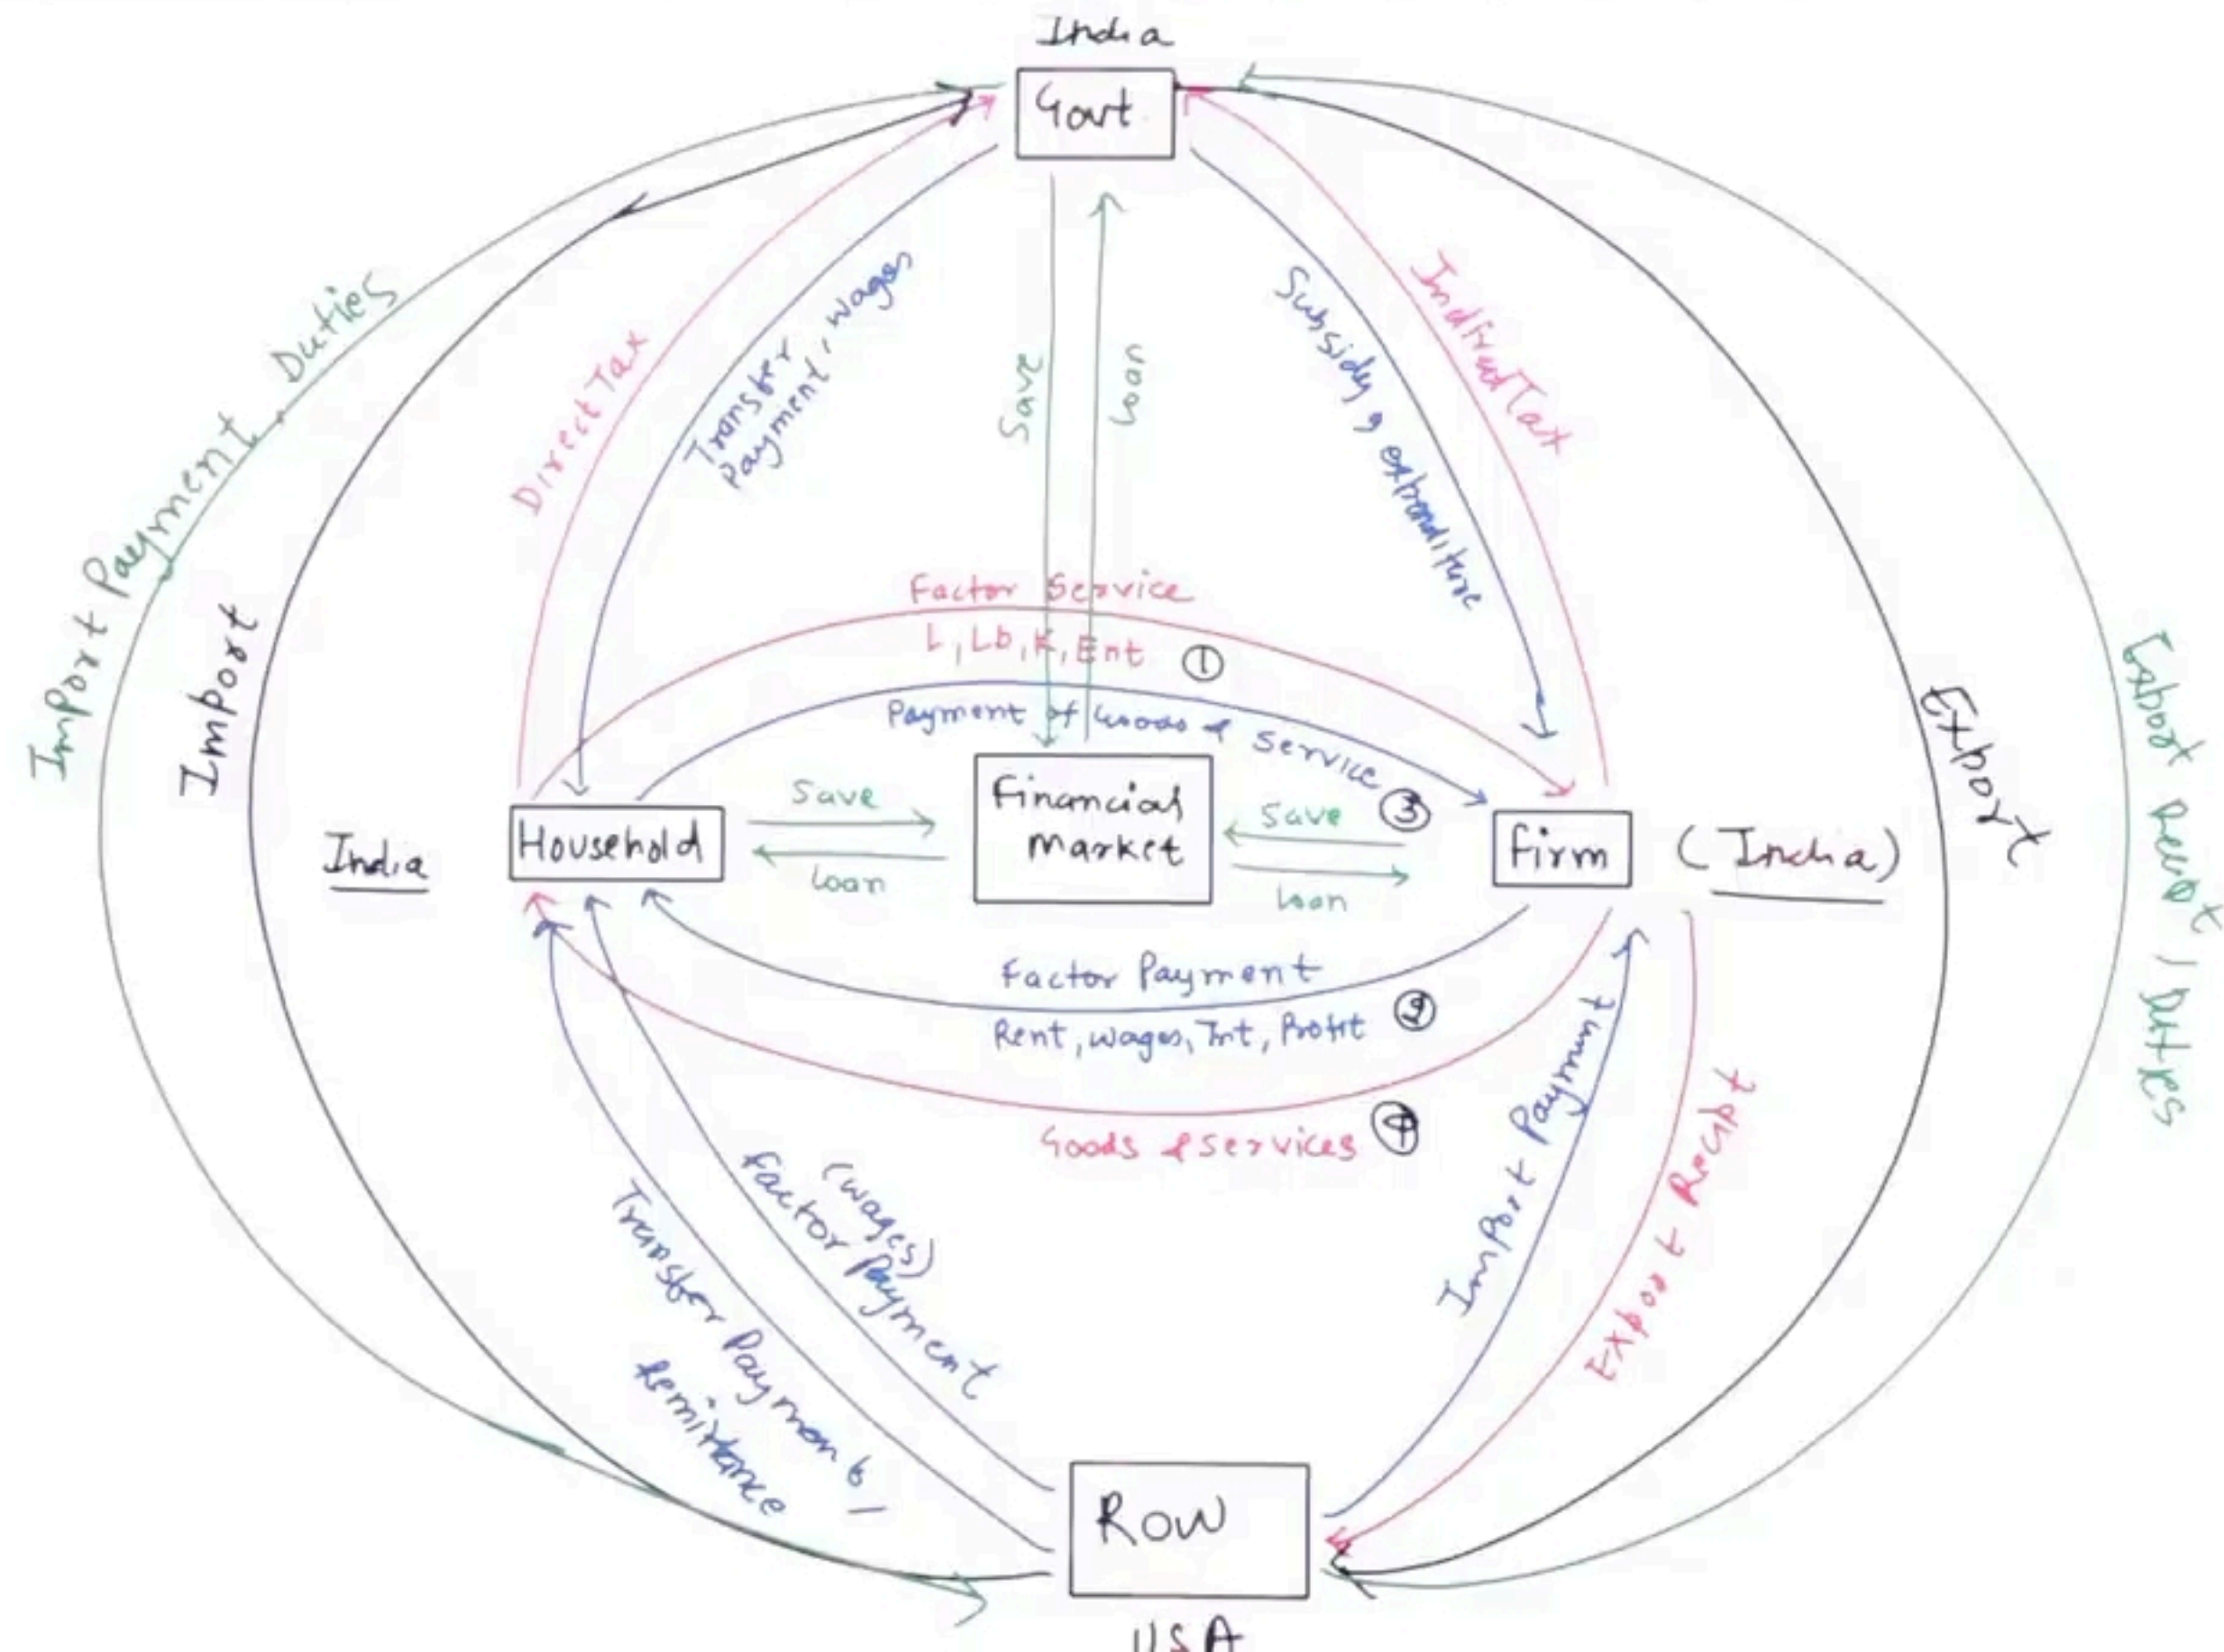 India
Govt.
Import Payment, Duties
Import
Direct Tax
Transfer
Payment, wages
Save
Loan
Subsidy, expenditure
Indirect Tax
Export
Export Receipt / Duties
Factor Service
L, Lb, K, Ent ①
Payment of Goods & Service ③
India
Household
Save
Loan
Financial
Market
Save
Loan
firm
(India)
Factor Payment
Rent, wages, Int, Profit ②
Goods & services ④
Transfer Payment /
Remittance
(wages)
factor Payment
Import Payment
Export Receipt
Row
USA